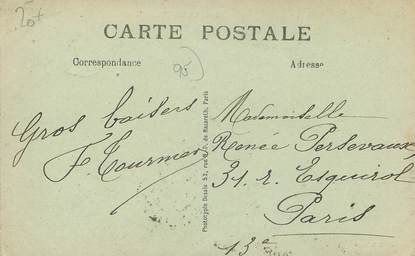 20+
CARTE POSTALE
Correspondance
Adresse
95
Gros baisers
F. Tournier
Phototypie Desaix 53, rue N.-D. de Nazareth, Paris
Mademoiselle
Renée Persevaux
31. r. Esquirol
Paris
13e